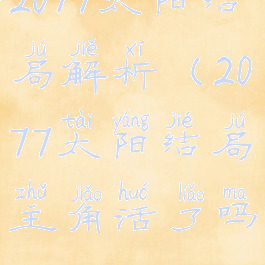 2077太阳结
jú jiě xī
局解析（20
tài yáng jié jú
77太阳结局
zhǔ jiǎo huó liǎo ma
主角活了吗